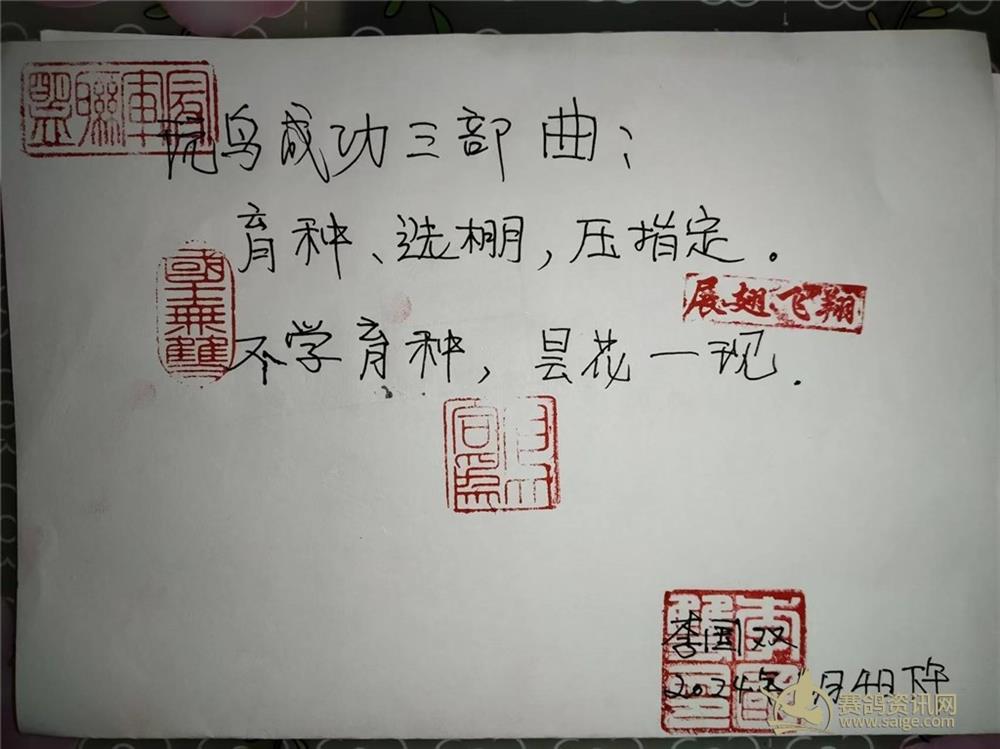 玩鸟成功三部曲：
育种、选棚，压指定。
展翅飞翔
國士無雙
不学育种，昙花一现.
李国双
2024年 月4日下午
赛鸽资讯网
www.saige.com